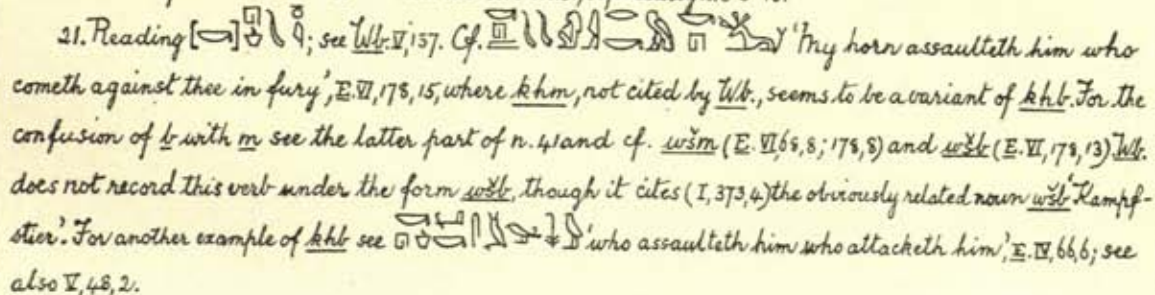 21. Reading [ ] ; see Wb. V, 137. Cf. 'My horn assaulteth him who
cometh against thee in fury', E. VI, 178, 15, where khm, not cited by Wb., seems to be a variant of khb. For the
confusion of b with m see the latter part of n. 41 and cf. wšm (E. VI, 68, 8; 178, 8) and wšb (E. VI, 178, 13). Wb.
does not record this verb under the form wšb, though it cites (I, 373, 4) the obviously related noun wšb 'Kampf-
stier'. For another example of khb see 'who assaulteth him who attacketh him', E. IV, 66, 6; see
also V, 48, 2.